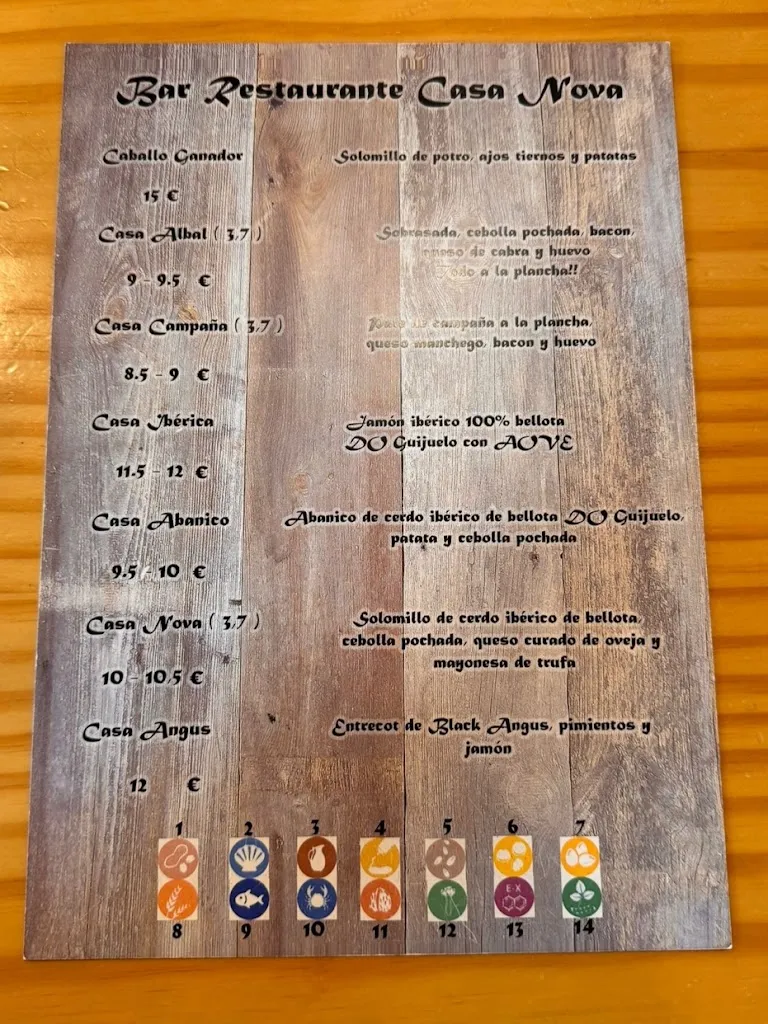 Bar Restaurante Casa Nova
Caballo Ganador
Solomillo de potro, ajos tiernos y patatas
15 €
Casa Albal ( 3,7 )
Sobrasada, cebolla pochada, bacon,
queso de cabra y huevo
Todo a la plancha!!
9 - 9.5 €
Casa Campaña ( 3,7 )
de campaña a la plancha,
queso manchego, bacon y huevo
8.5 - 9 €
Casa Ibérica
Jamón ibérico 100% bellota
DO Guijuelo con AOVE
11.5 - 12 €
Casa Abanico
Abanico de cerdo ibérico de bellota DO Guijuelo,
patata y cebolla pochada
9.5 - 10 €
Casa Nova ( 3,7 )
Solomillo de cerdo ibérico de bellota,
cebolla pochada, queso curado de oveja y
mayonesa de trufa
10 - 10,5 €
Casa Angus
Entrecot de Black Angus, pimientos y
jamón
12 €
1 2 3 4 5 6 7
E-X
8 9 10 11 12 13 14